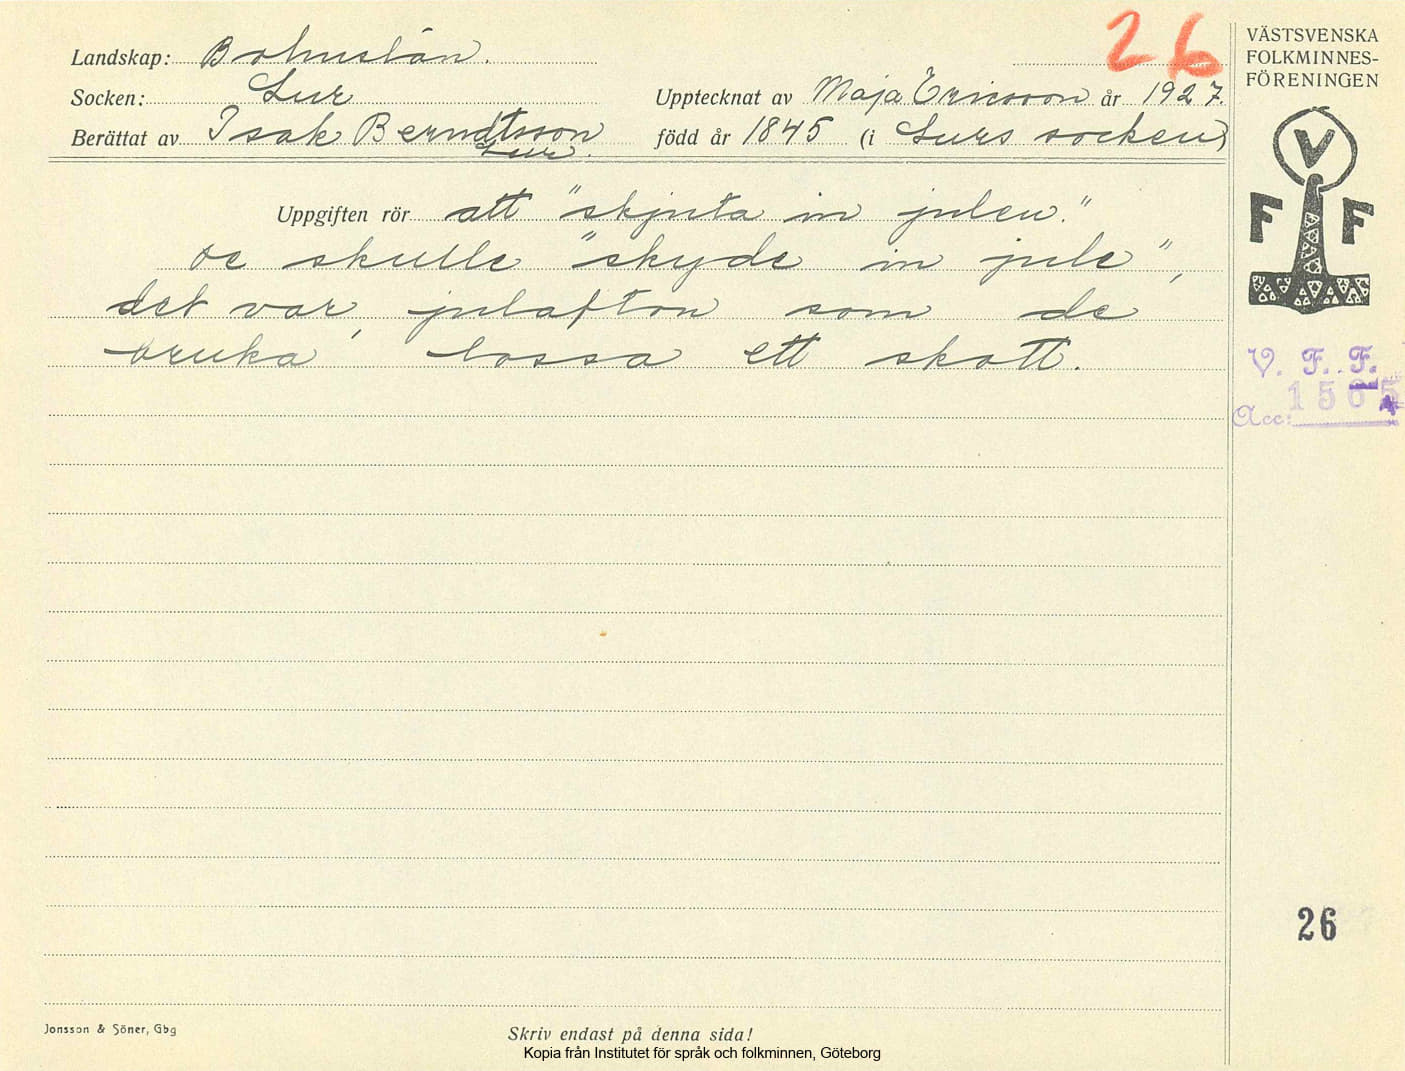 26
Landskap: Bohuslän.
Socken: Lur
Upptecknat av Maja Ericsson år 1927.
Berättat av Isak Berndtsson
Lur.
född år 1845 (i Lurs socken)
Uppgiften rör att "skjuta in julen."
De skulle "skyde in jule",
det var julafton som de
bruka lossa ett skott.
VÄSTSVENSKA
FOLKMINNES-
FÖRENINGEN
V
F F
V. F. F.
Acc: 1565
26
Jonsson & Söner, Gbg
Skriv endast på denna sida!
Kopia från Institutet för språk och folkminnen, Göteborg